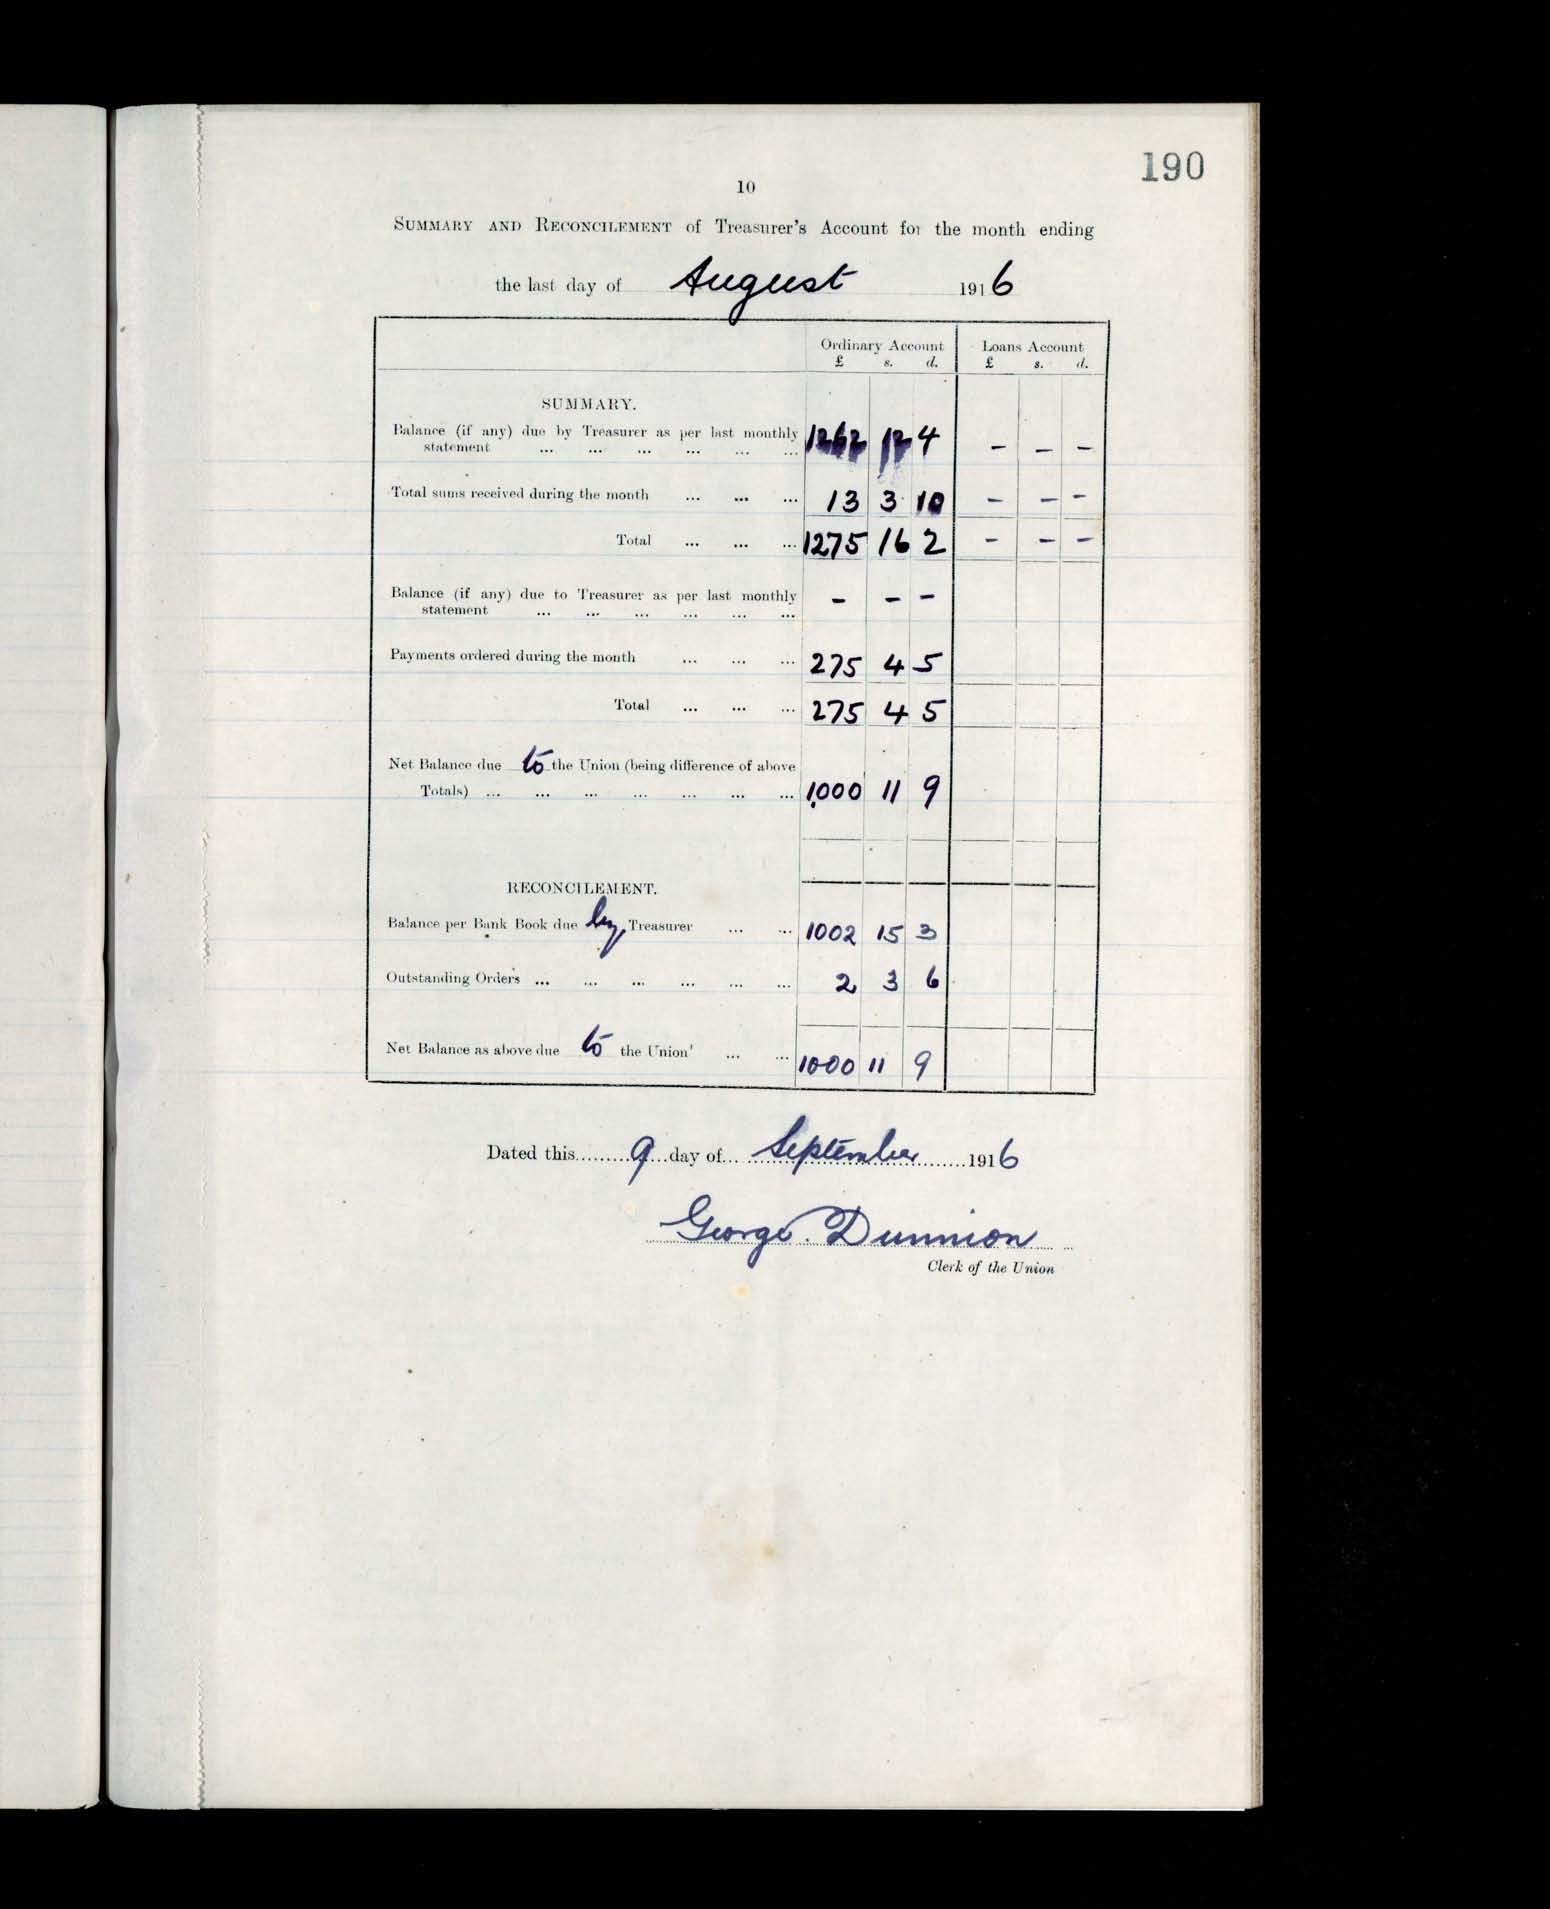 190
10
SUMMARY AND RECONCILEMENT of Treasurer's Account for the month ending
the last day of August 1916
Ordinary Account Loans Account
£ s. d. £ s. d.
SUMMARY.
Balance (if any) due by Treasurer as per last monthly
statement ... ... ... ... ... ... 1262 12 4 – – –
Total sums received during the month ... ... ... 13 3 10 – – –
Total ... ... ... 1275 16 2 – – –
Balance (if any) due to Treasurer as per last monthly
statement ... ... ... ... ... ... – – –
Payments ordered during the month ... ... ... 275 4 5
Total ... ... ... 275 4 5
Net Balance due to the Union (being difference of above
Totals) ... ... ... ... ... ... ... 1,000 11 9
RECONCILEMENT.
Balance per Bank Book due by Treasurer ... ... 1002 15 3
Outstanding Orders ... ... ... ... ... ... 2 3 6
Net Balance as above due to the Union' ... ... 1000 11 9
Dated this.........9...day of... September .......1916
George Dunnion
Clerk of the Union